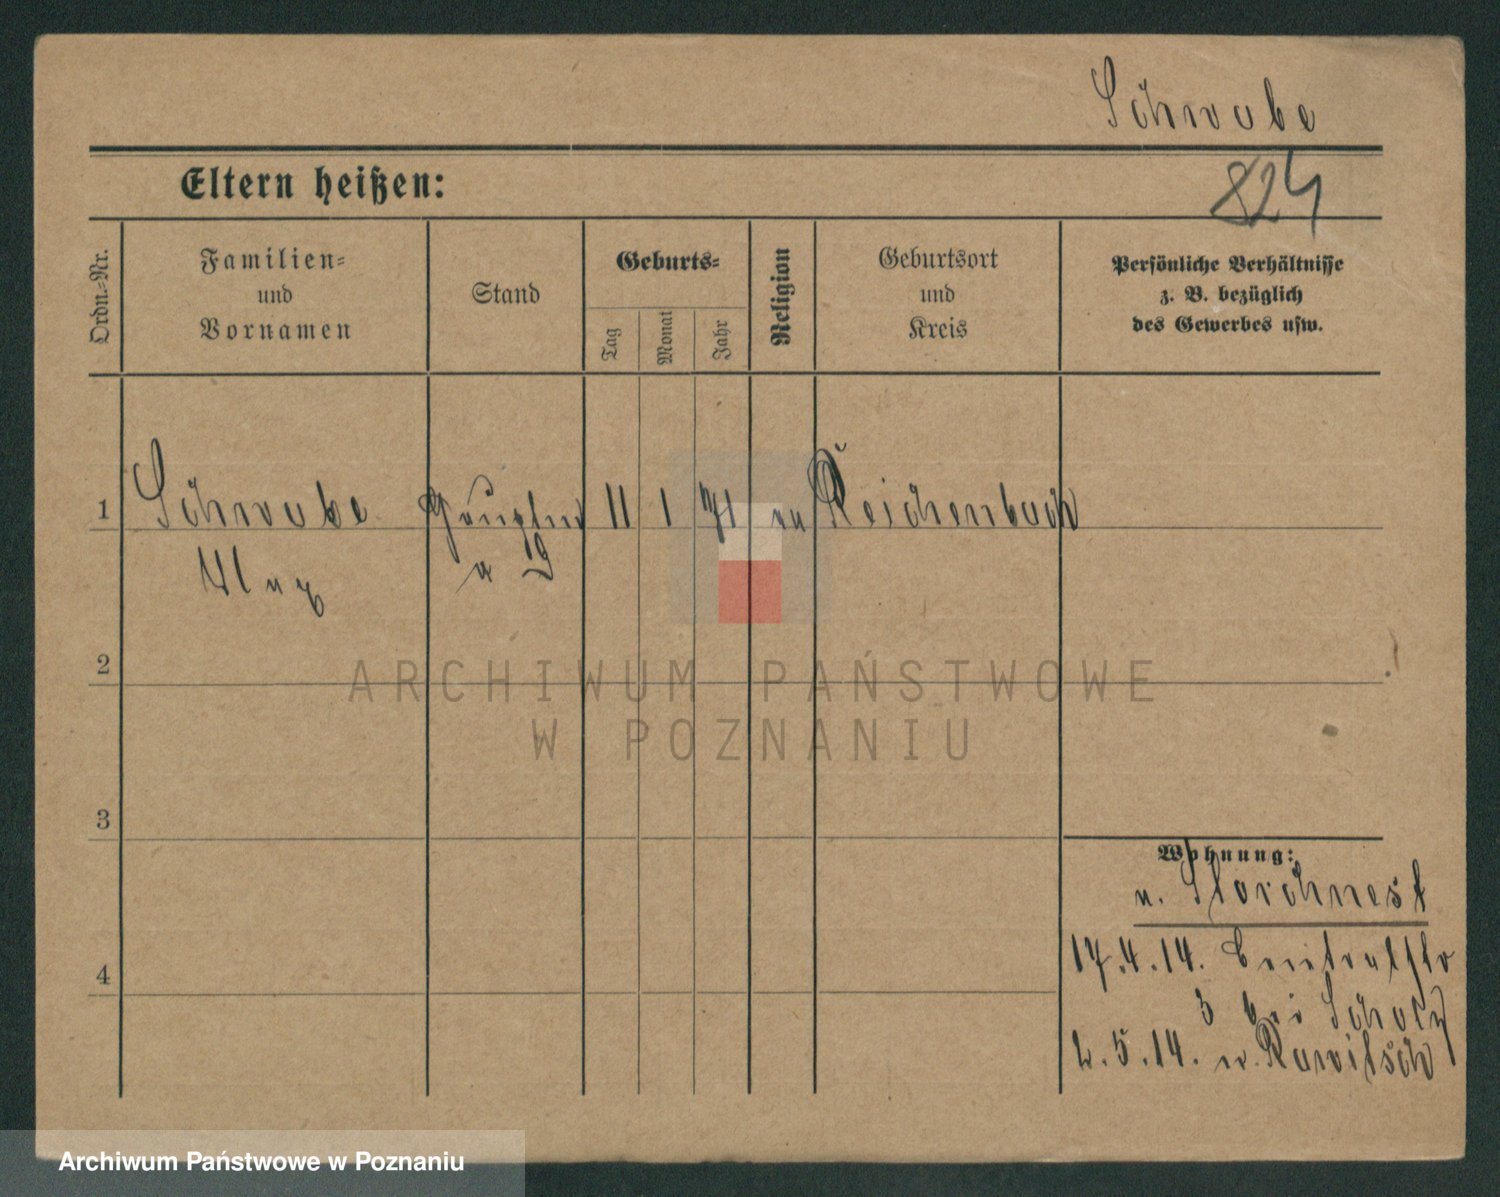 Schwabe
824
Eltern heißen:
Ordn.-Nr.
Familien-
und
Vornamen
Stand
Geburts-
Tag
Monat
Jahr
Religion
Geburtsort
und
Kreis
Persönliche Verhältnisse
z. B. bezüglich
des Gewerbes usw.
1 Schwabe 11 1 71 ev Reichenbach
Max a D
2
ARCHIWUM PAŃSTWOWE
W POZNANIU
3
Wohnung:
n. Storchnest
17.4.14.
3 bei Scholz
2.5.14. n. Rawitsch
4
Archiwum Państwowe w Poznaniu